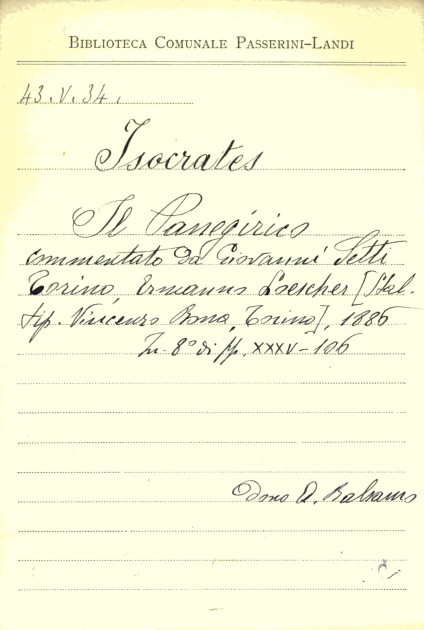 BIBLIOTECA COMUNALE PASSERINI-LANDI
43.V.34.
Isocrates
Il Panegirico
commentato da Giovanni Setti
Torino, Ermanno Loescher [Stab.
tip. Vincenzo Bona, Torino], 1886
In-8° di pp. XXXV-106
Dono A. Balsamo